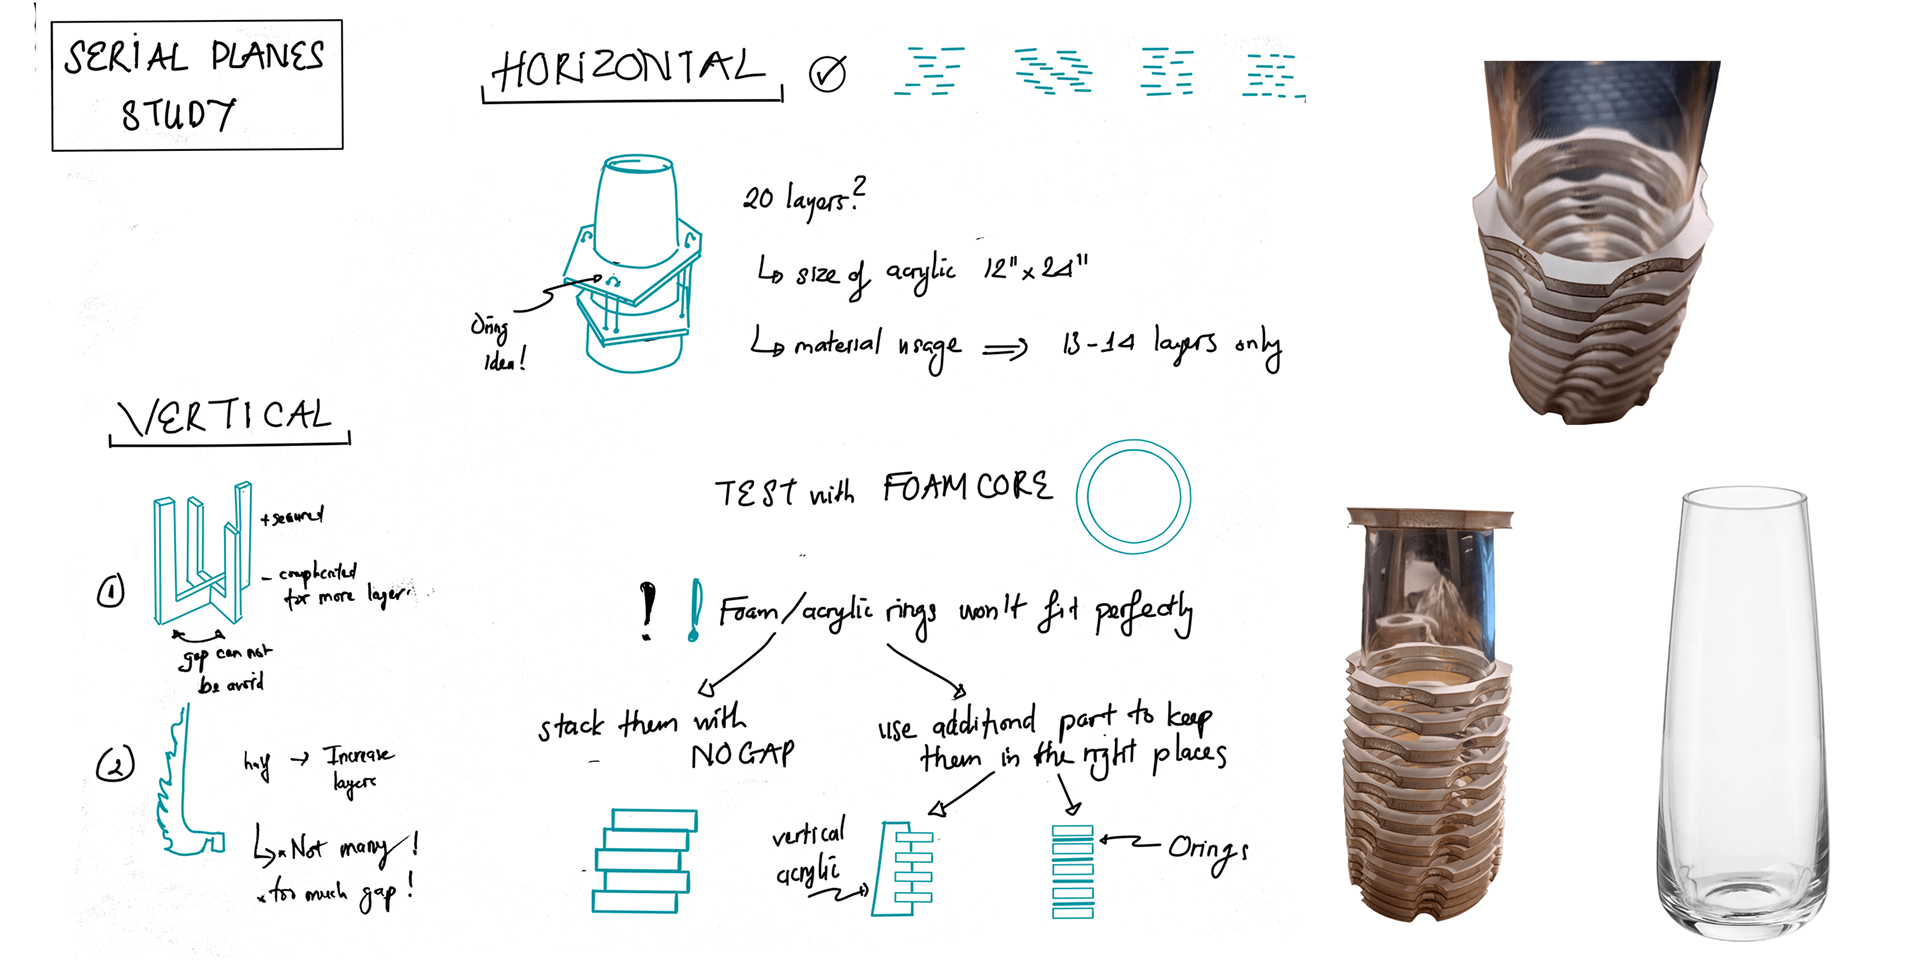 SERIAL PLANES
STUDY
HORIZONTAL
20 layers?
↳ size of acrylic 12" x 24"
↳ material usage ⇒ 13-14 layers only
Oring
idea!
VERTICAL
① + secured
- complicated
for more layers
gap can not
be avoid
② → Increase
layers
↳ × Not many!
× too much gap!
TEST with FOAMCORE
! ! Foam/acrylic rings won't fit perfectly
stack them with
NO GAP
use additional part to keep
them in the right places
vertical
acrylic
Orings